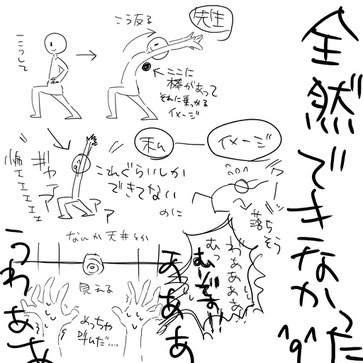 全然できなかった
^q^
先生
こう反る
こうして
ここに
棒があって
それに乗っかる
イメージ
私
イメージ
これぐらいしか
できてない
のに
ギャ
ァ
怖
エエエエエ
落ち
そう
なんか天井とか
見える
めっちゃ
叫んだ…
むっ
むりです!!
わぁああぁ
うわあああ